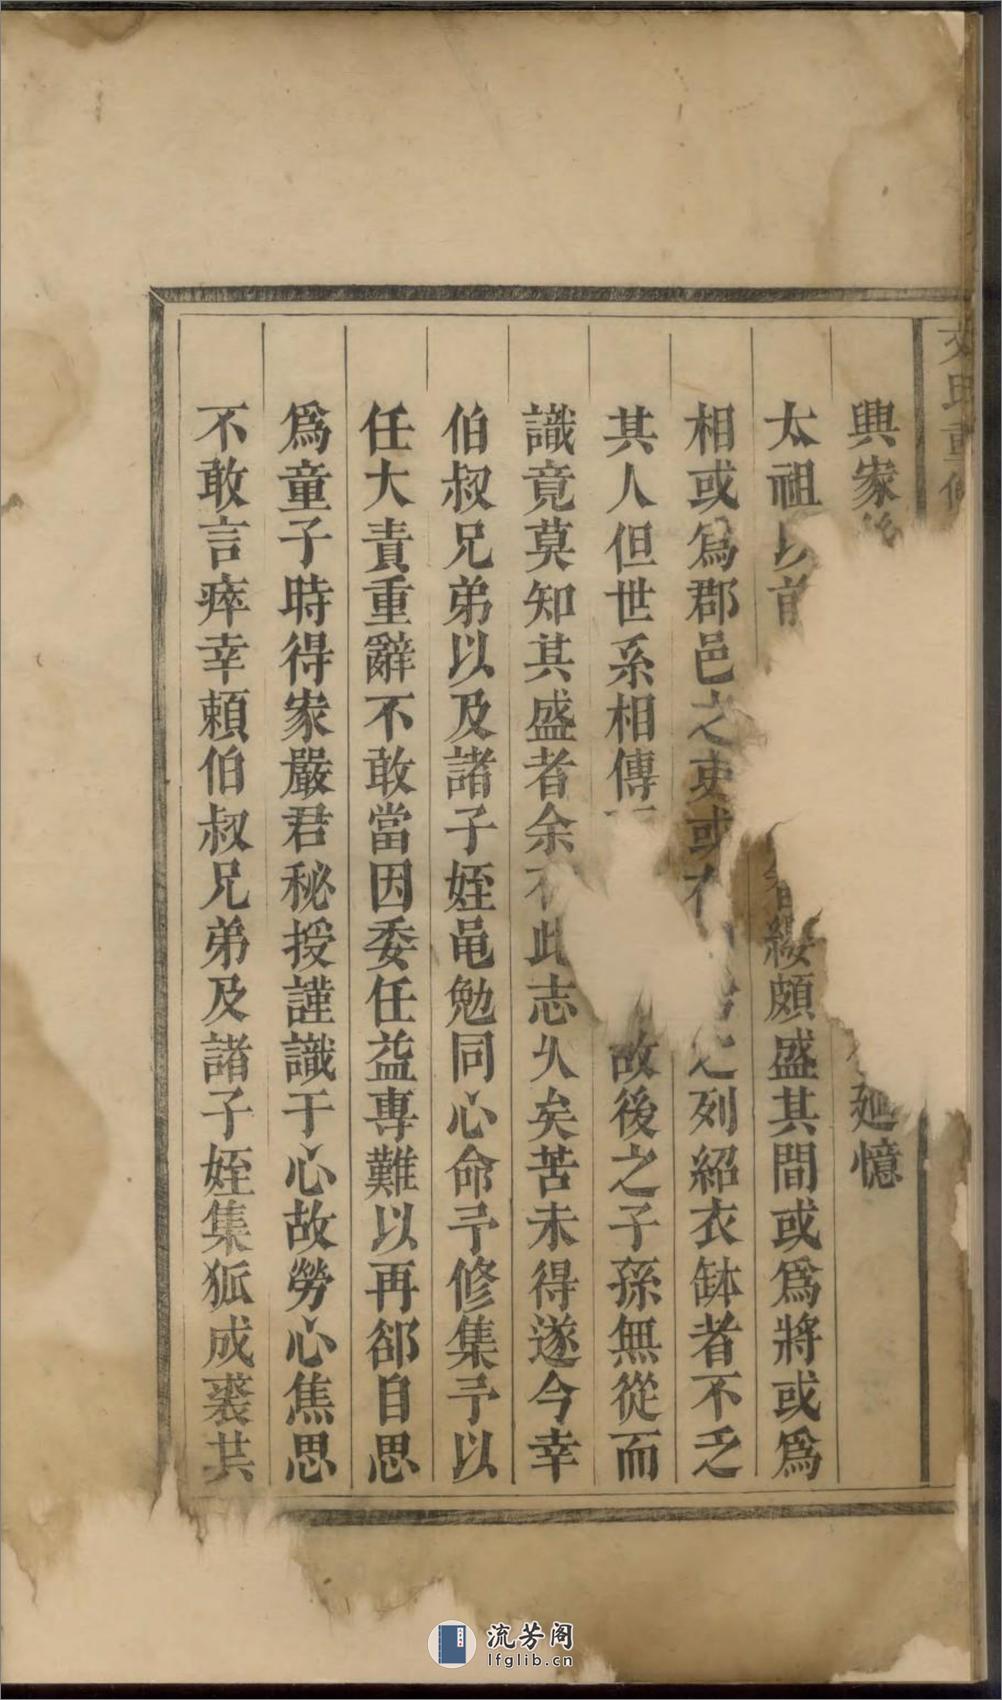 氏重修
興家
廻憶
太祖以前
纓頗盛其間或爲將或爲
相或爲郡邑之吏或
之列紹衣缽者不乏
其人但世系相傳
故後之子孫無從而
識竟莫知其盛者余有此志久矣苦未得遂今幸
伯叔兄弟以及諸子姪黽勉同心命予修集予以
任大責重辭不敢當因委任益專難以再郤自思
爲童子時得家嚴君秘授謹識于心故勞心焦思
不敢言瘁幸頼伯叔兄弟及諸子姪集狐成裘共
流芳阁
lfglib.cn